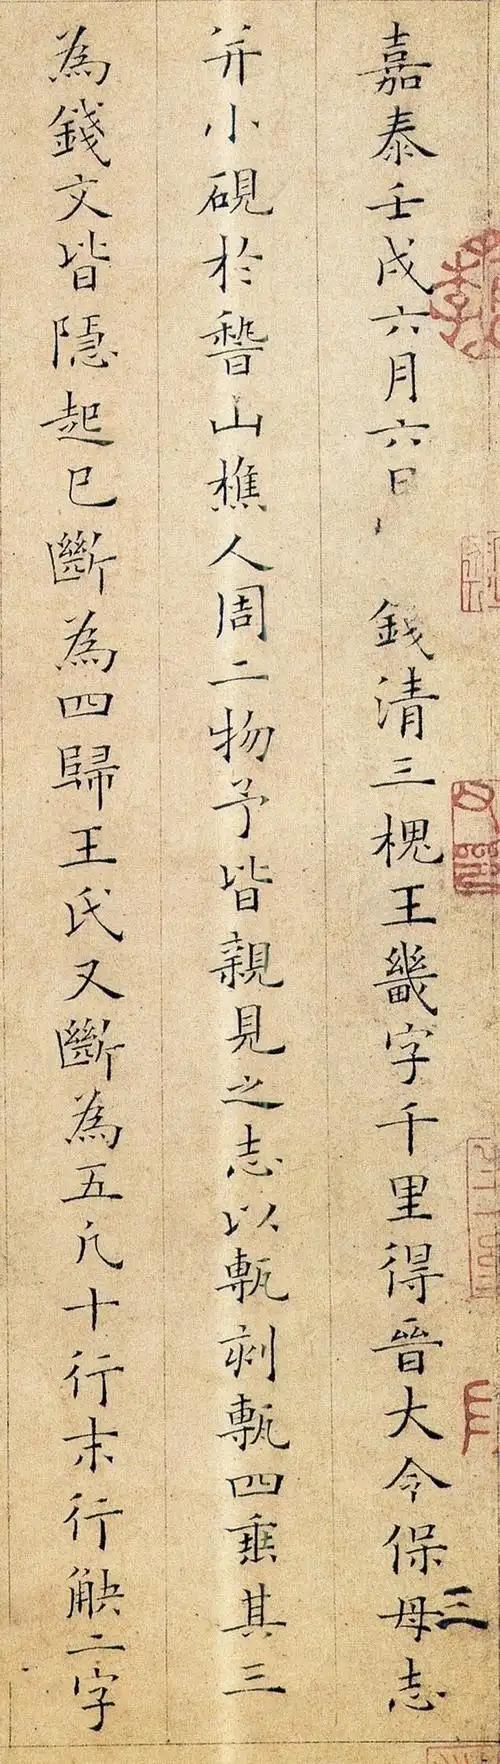 嘉泰壬戌六月六日 錢清三槐王畿字千里得晉大令保母志三
并小硯於稽山樵人周二物予皆親見之志以甎刻甎四垂其三
為錢文皆隱起已斷為四歸王氏又斷為五凡十行末行觖二字